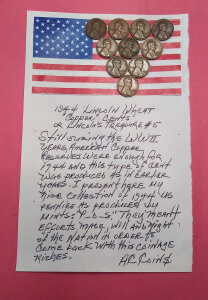 1944 Lincoln Wheat
"Copper" Cents
or Lincoln's Treasure #5
Still owning the WWII
years, American Copper
Reserves were enough for
1944 and this type of cent
was produced as in earlier
years. I present here my
nine collection of 1944 US
pennies as produced by
mints: "P-D-S". They meant
efforts, might, will and might
of the Nation in order to
come back with this coinage
riches.
AC Coins